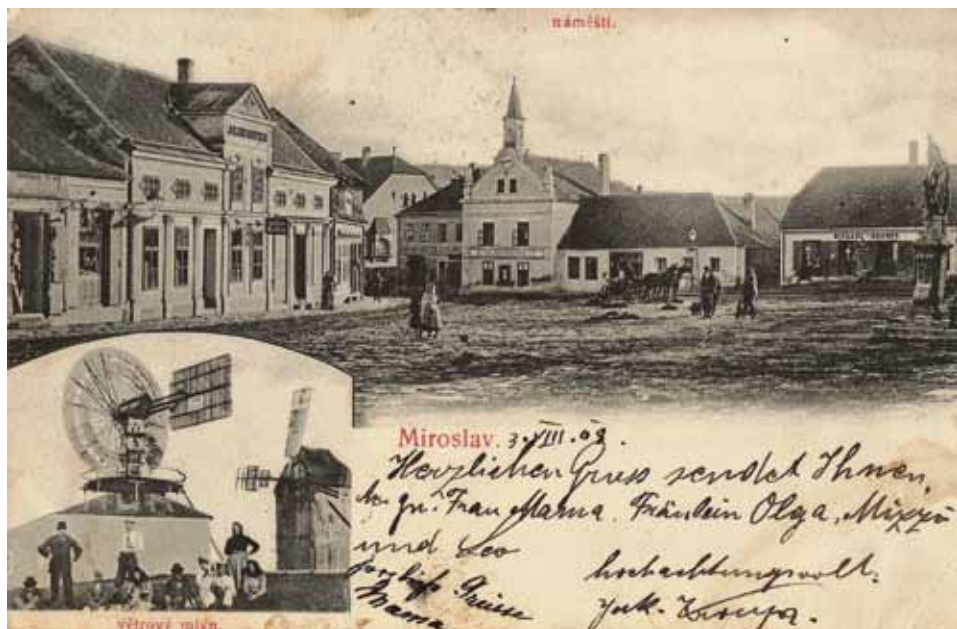 náměstí.
Miroslav. 3. VIII. 08.
Herzlichen Gruss sendet Ihnen,
gn. Frau Mama. Fräulein Olga, Mizzi
und Leo
hochachtungsvoll.
Grüsse
Mama
větrový mlýn.